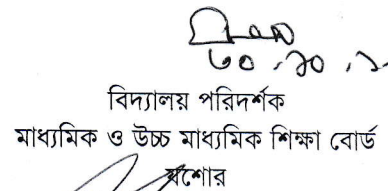 ৩০.১০.১
বিদ্যালয় পরিদর্শক
মাধ্যমিক ও উচ্চ মাধ্যমিক শিক্ষা বোর্ড
যশোর